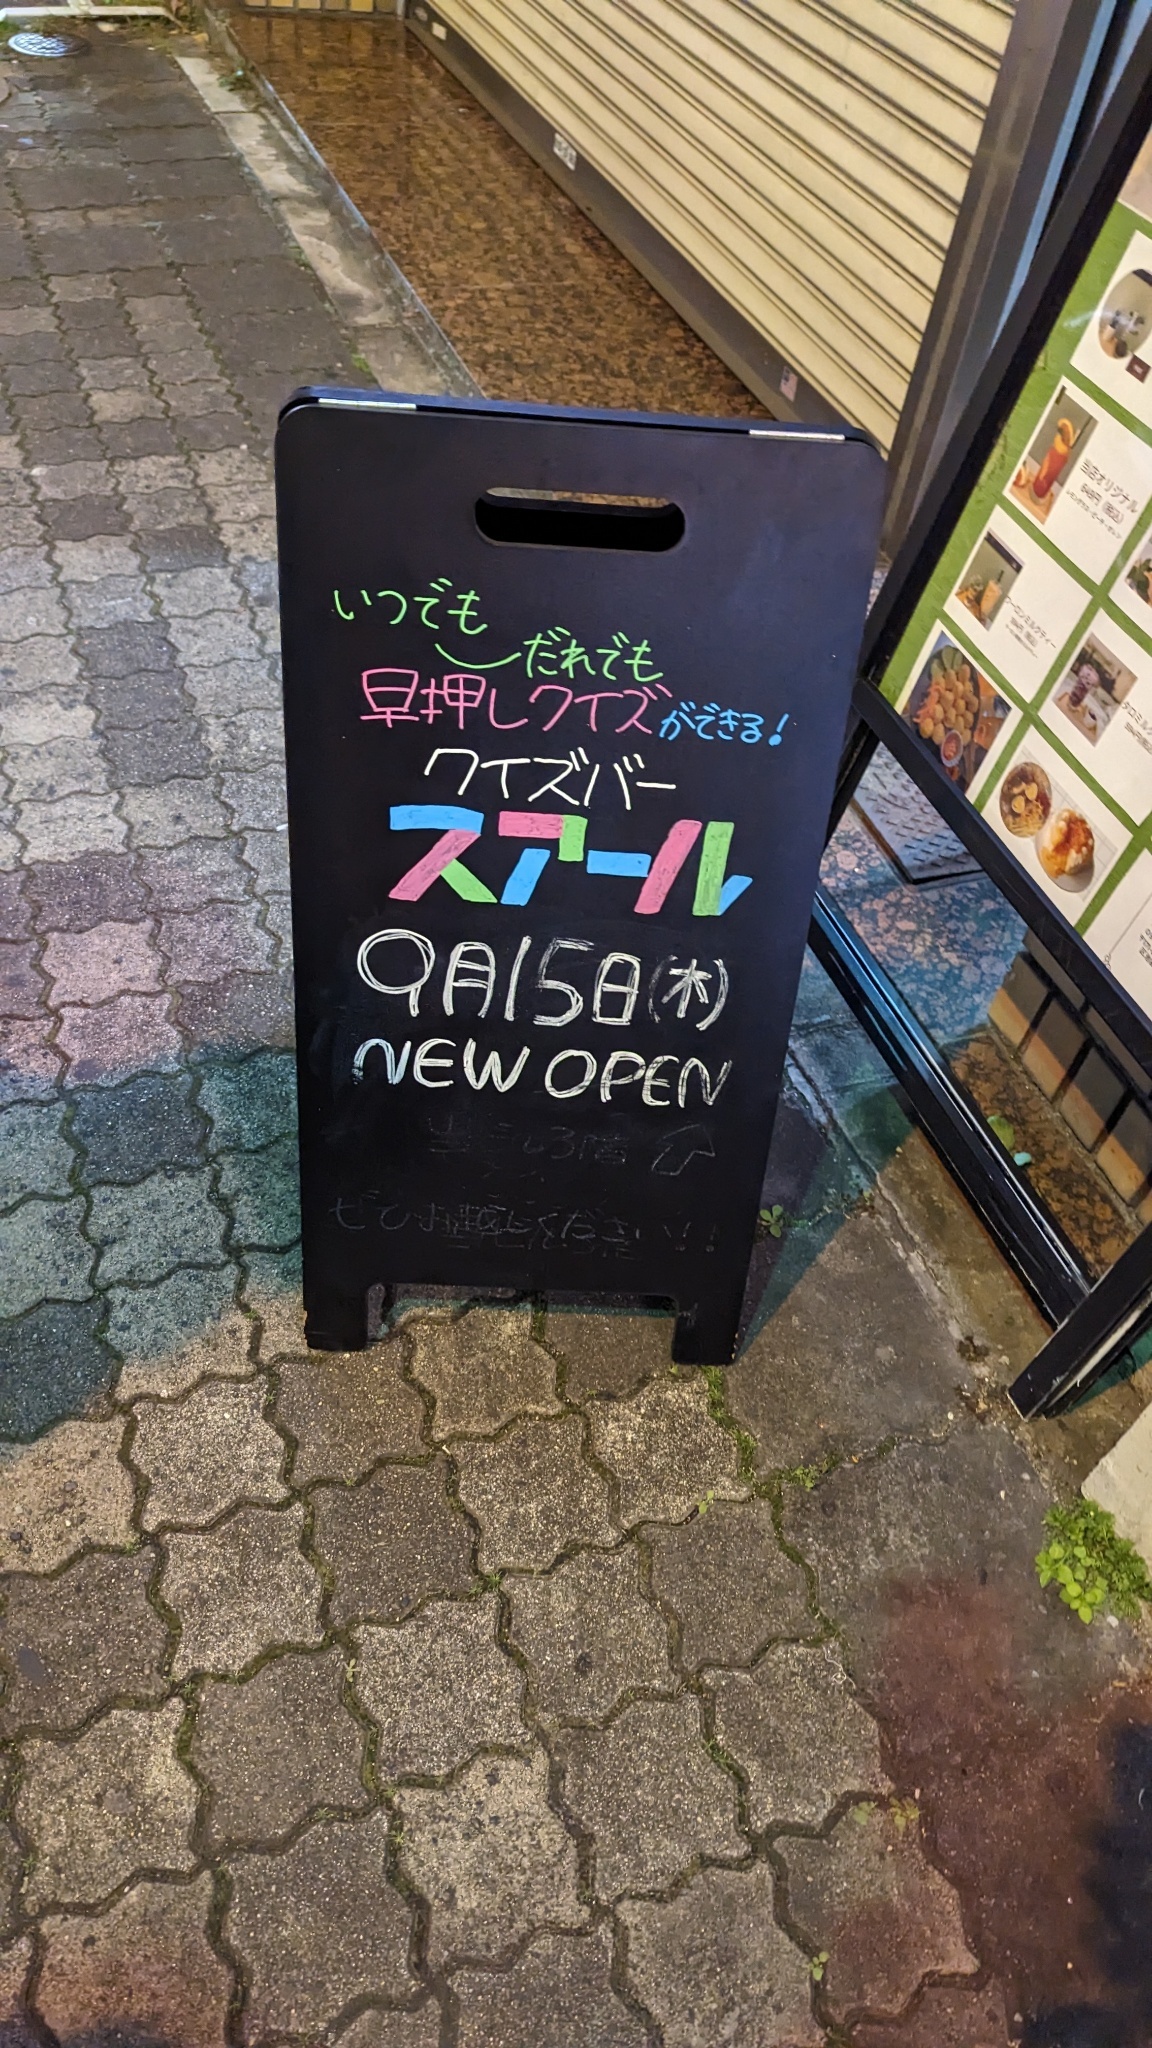 いつでも
だれでも
早押しクイズができる!
クイズバー
スアール
9月15日(木)
NEW OPEN
3階
ぜひお越しください!!
当店オリジナル